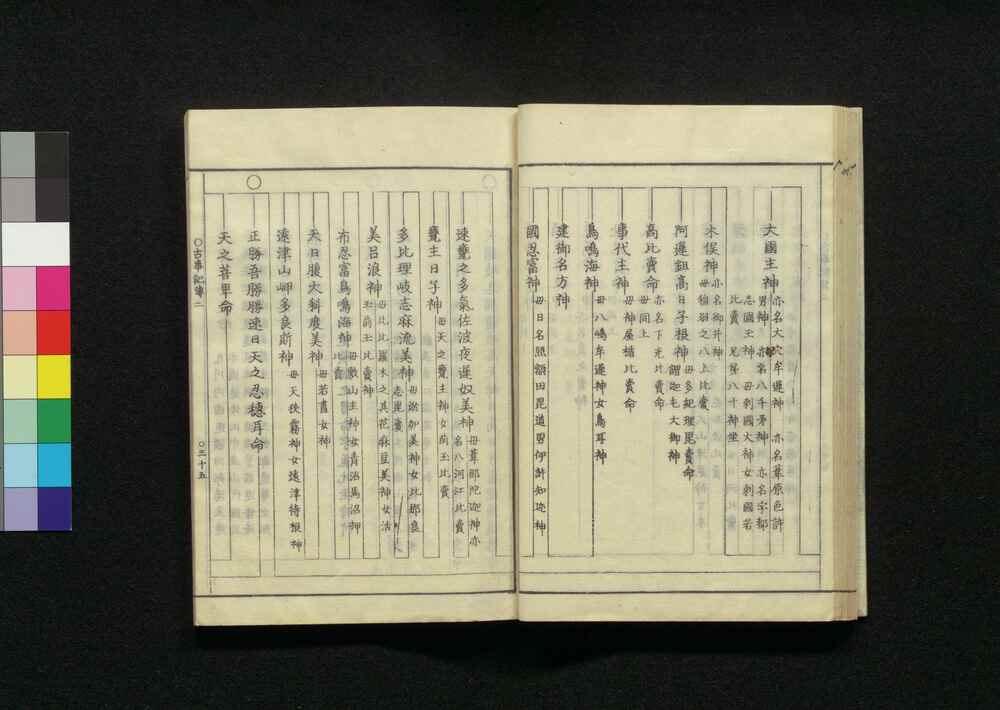 大國主神 亦名大穴牟遲神 亦名葦原色許
男神 亦名八千矛神 亦名宇都
志國玉神 毋刺國大神女刺國若
比賣 兄弟八十神坐
木俣神 亦名御井神
毋稻羽之八上比賣
阿遲鉏高日子根神 毋多紀理毘賣命
謂迦毛大御神
高比賣命 亦名下光比賣命
毋同上
事代主神 毋神屋楯比賣命
鳥鳴海神 毋八嶋牟遲神女鳥耳神
建御名方神
國忍富神 毋日名照額田毘道男伊許知迩神
速甕之多氣佐波夜遲奴美神 毋葦那陀迦神亦
名八河江比賣
甕主日子神 毋天之甕主神女前玉比賣
多比理岐志麻流美神 毋淤加美神女比那良
志毘賣
美呂浪神 毋比比羅木之其花麻豆美神女活
玉前玉比賣神
布忍富鳥鳴海神 毋敷山主神女青沼馬沼押
比賣
天日腹大科度美神 毋若晝女神
遠津山岬多良斯神 毋天狹霧神女遠津待根神
○
正勝吾勝勝速日天之忍穗耳命
天之菩卑命
○古事記傳二
○三十五